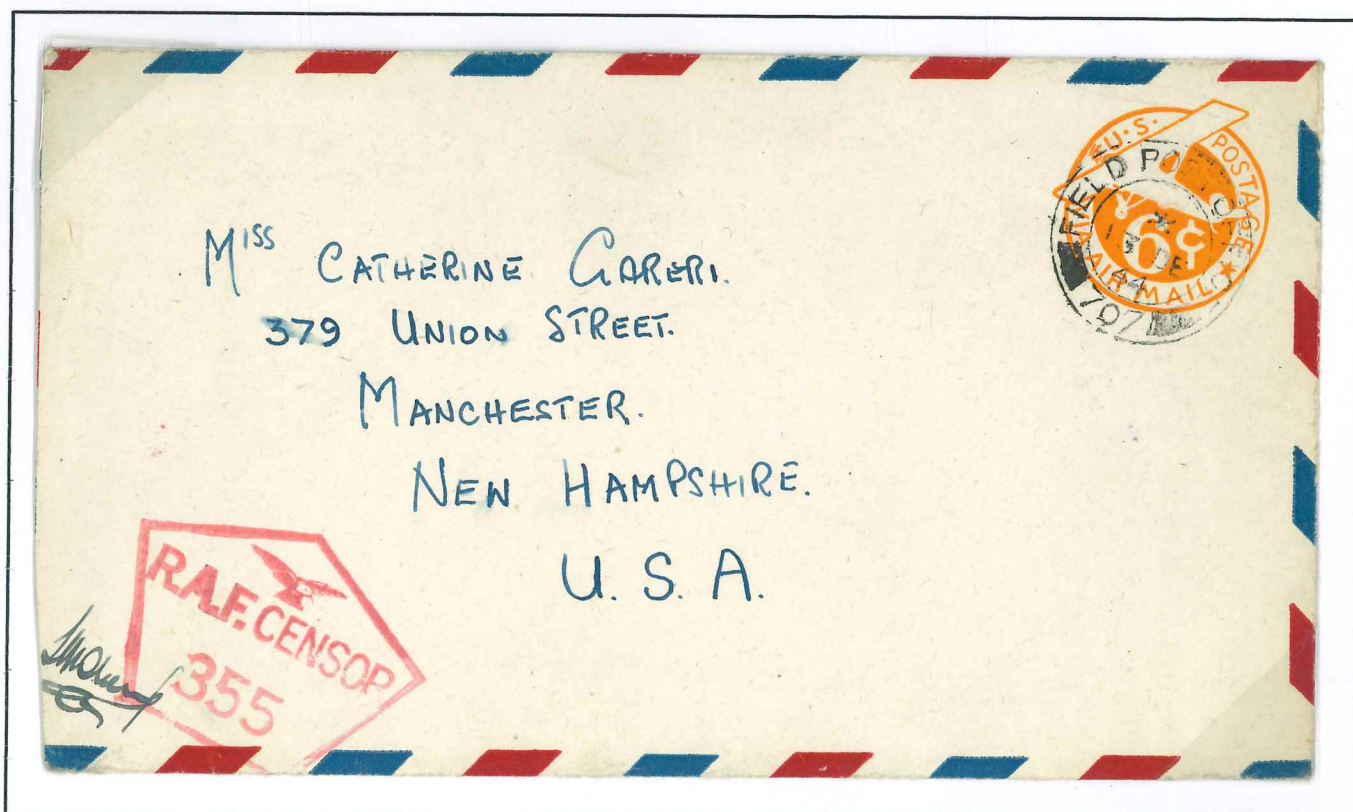 U.S. POSTAGE
6¢
AIR MAIL
FIELD
DE
44
707
Miss CATHERINE GARERI.
379 UNION STREET.
MANCHESTER.
NEW HAMPSHIRE.
U. S. A.
R.A.F. CENSOR
355